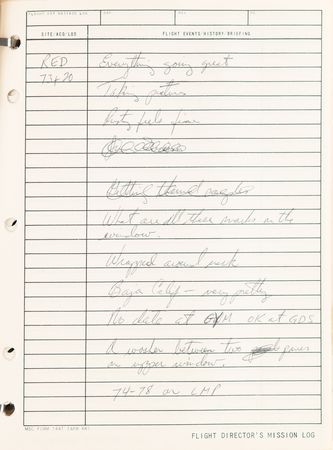 SITE/ACQ/LOS FLIGHT EVENTS/HISTORY/BRIEFING
RED Everything going great
73+20
Taking pictures
Rusty feels fine
Getting thermal samples
What are all these marks on the
window.
Wrapped around neck
Baja Calif - very pretty
No data at GYM OK at GDS
A washer between two panes
on upper window.
74-78 on LMP
MSC FORM 1447
FLIGHT DIRECTOR'S MISSION LOG